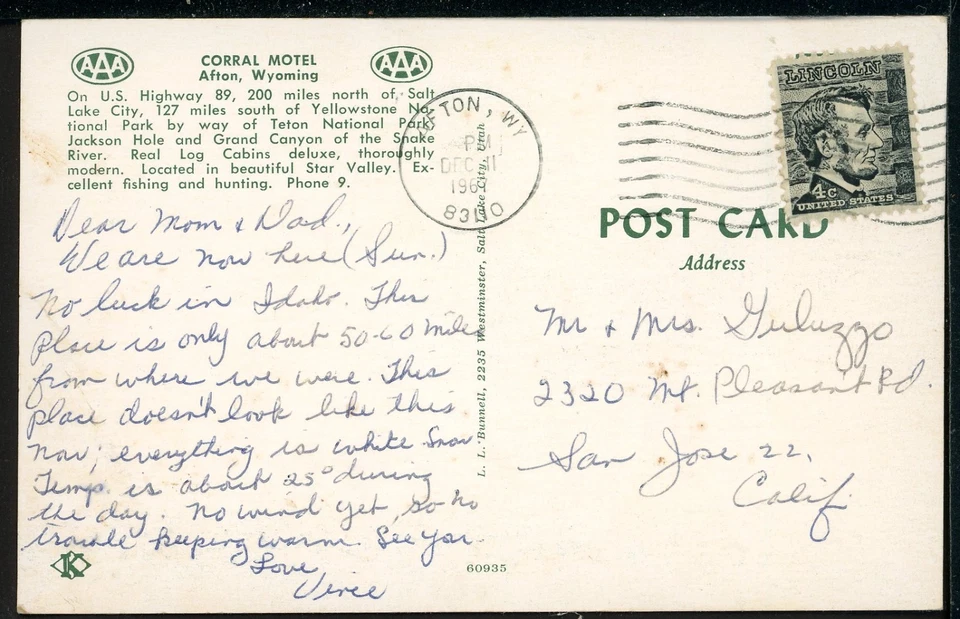 AAA
CORRAL MOTEL
Afton, Wyoming
AAA
On U.S. Highway 89, 200 miles north of Salt
Lake City, 127 miles south of Yellowstone Na-
tional Park by way of Teton National Park,
Jackson Hole and Grand Canyon of the Snake
River. Real Log Cabins deluxe, thoroughly
modern. Located in beautiful Star Valley. Ex-
cellent fishing and hunting. Phone 9.
Dear Mom & Dad.,
We are now here (Sun.)
No luck in Idaho. This
place is only about 50-60 miles
from where we were. This
place doesn't look like this
now; everything is white Snow
Temp. is about 25° during
the day. No wind yet, so no
trouble keeping warm. See you.
Love
Vince
K
60935
L. L. Bunnell, 2235 Westminster, Salt Lake City, Utah
AFTON, WY
PM
DEC 11
196
83110
LINCOLN
4c
UNITED STATES
POST CARD
Address
Mr & Mrs. Guluzzo
2320 Mt. Pleasant Rd.
San Jose 22,
Calif.